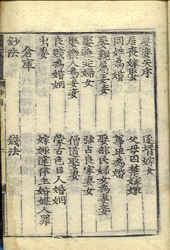 妻妾失序 逐壻嫁女
居喪嫁娶 父母囚禁嫁娶
同姓為婚 尊卑為婚
娶親屬妻妾 娶部民婦女為妻妾
娶逃走婦女 強占良家妻女
娶樂人為妻妾 僧道娶妻
良賤為婚姻 蒙古色目人婚姻
出妻 嫁娶違律主婚媒人罪
倉庫
鈔法 錢法